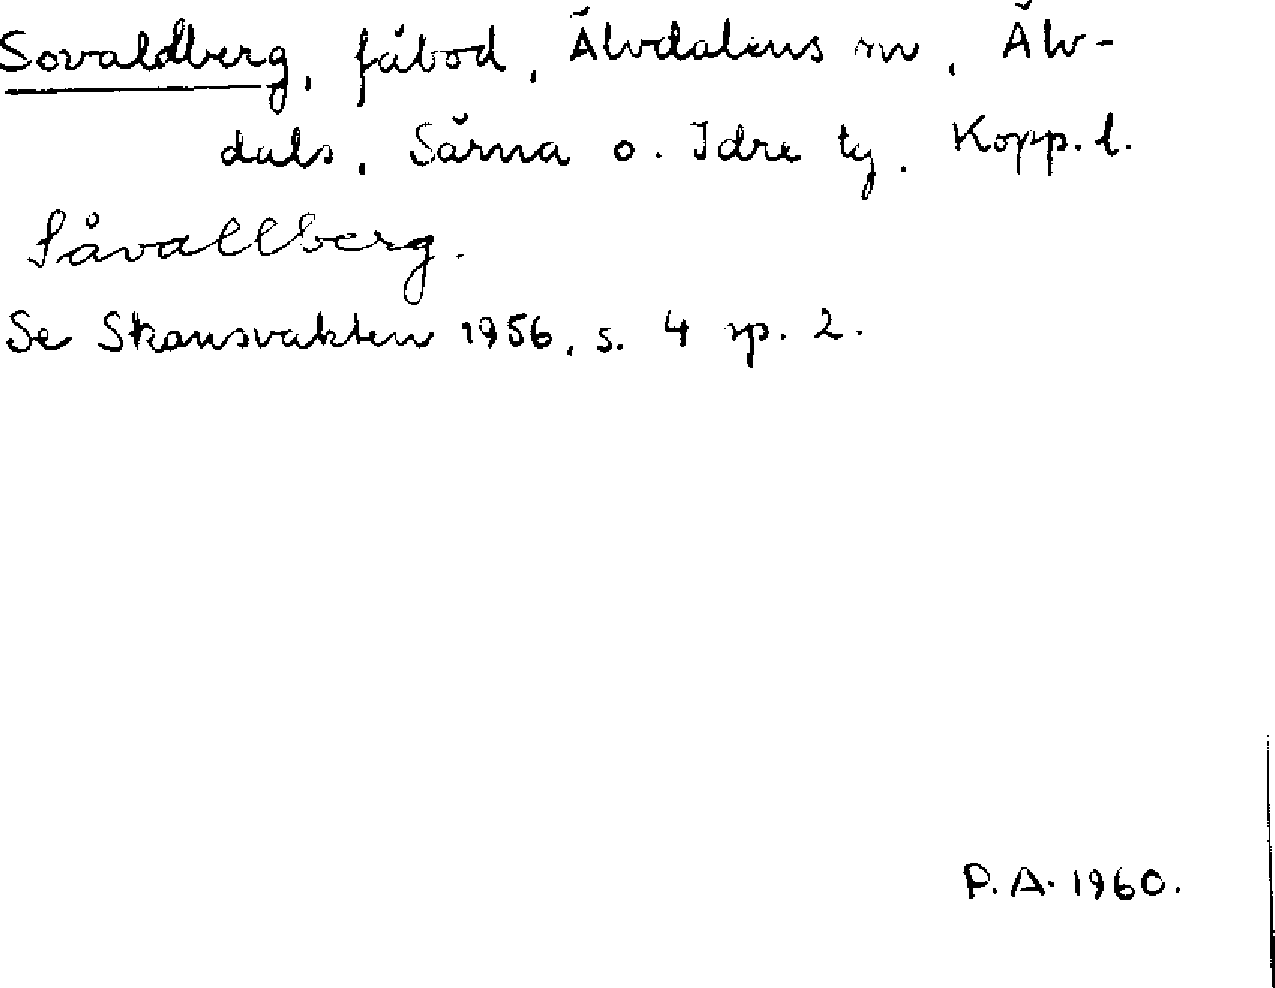 Sovaldberg, fäbod, Älvdalens sn, Älv-
dals, Särna o. Idre tg. Kopp. l.
Såvallberg.
Se Skansvakten 1956, s. 4 sp. 2.
P.A. 1960.